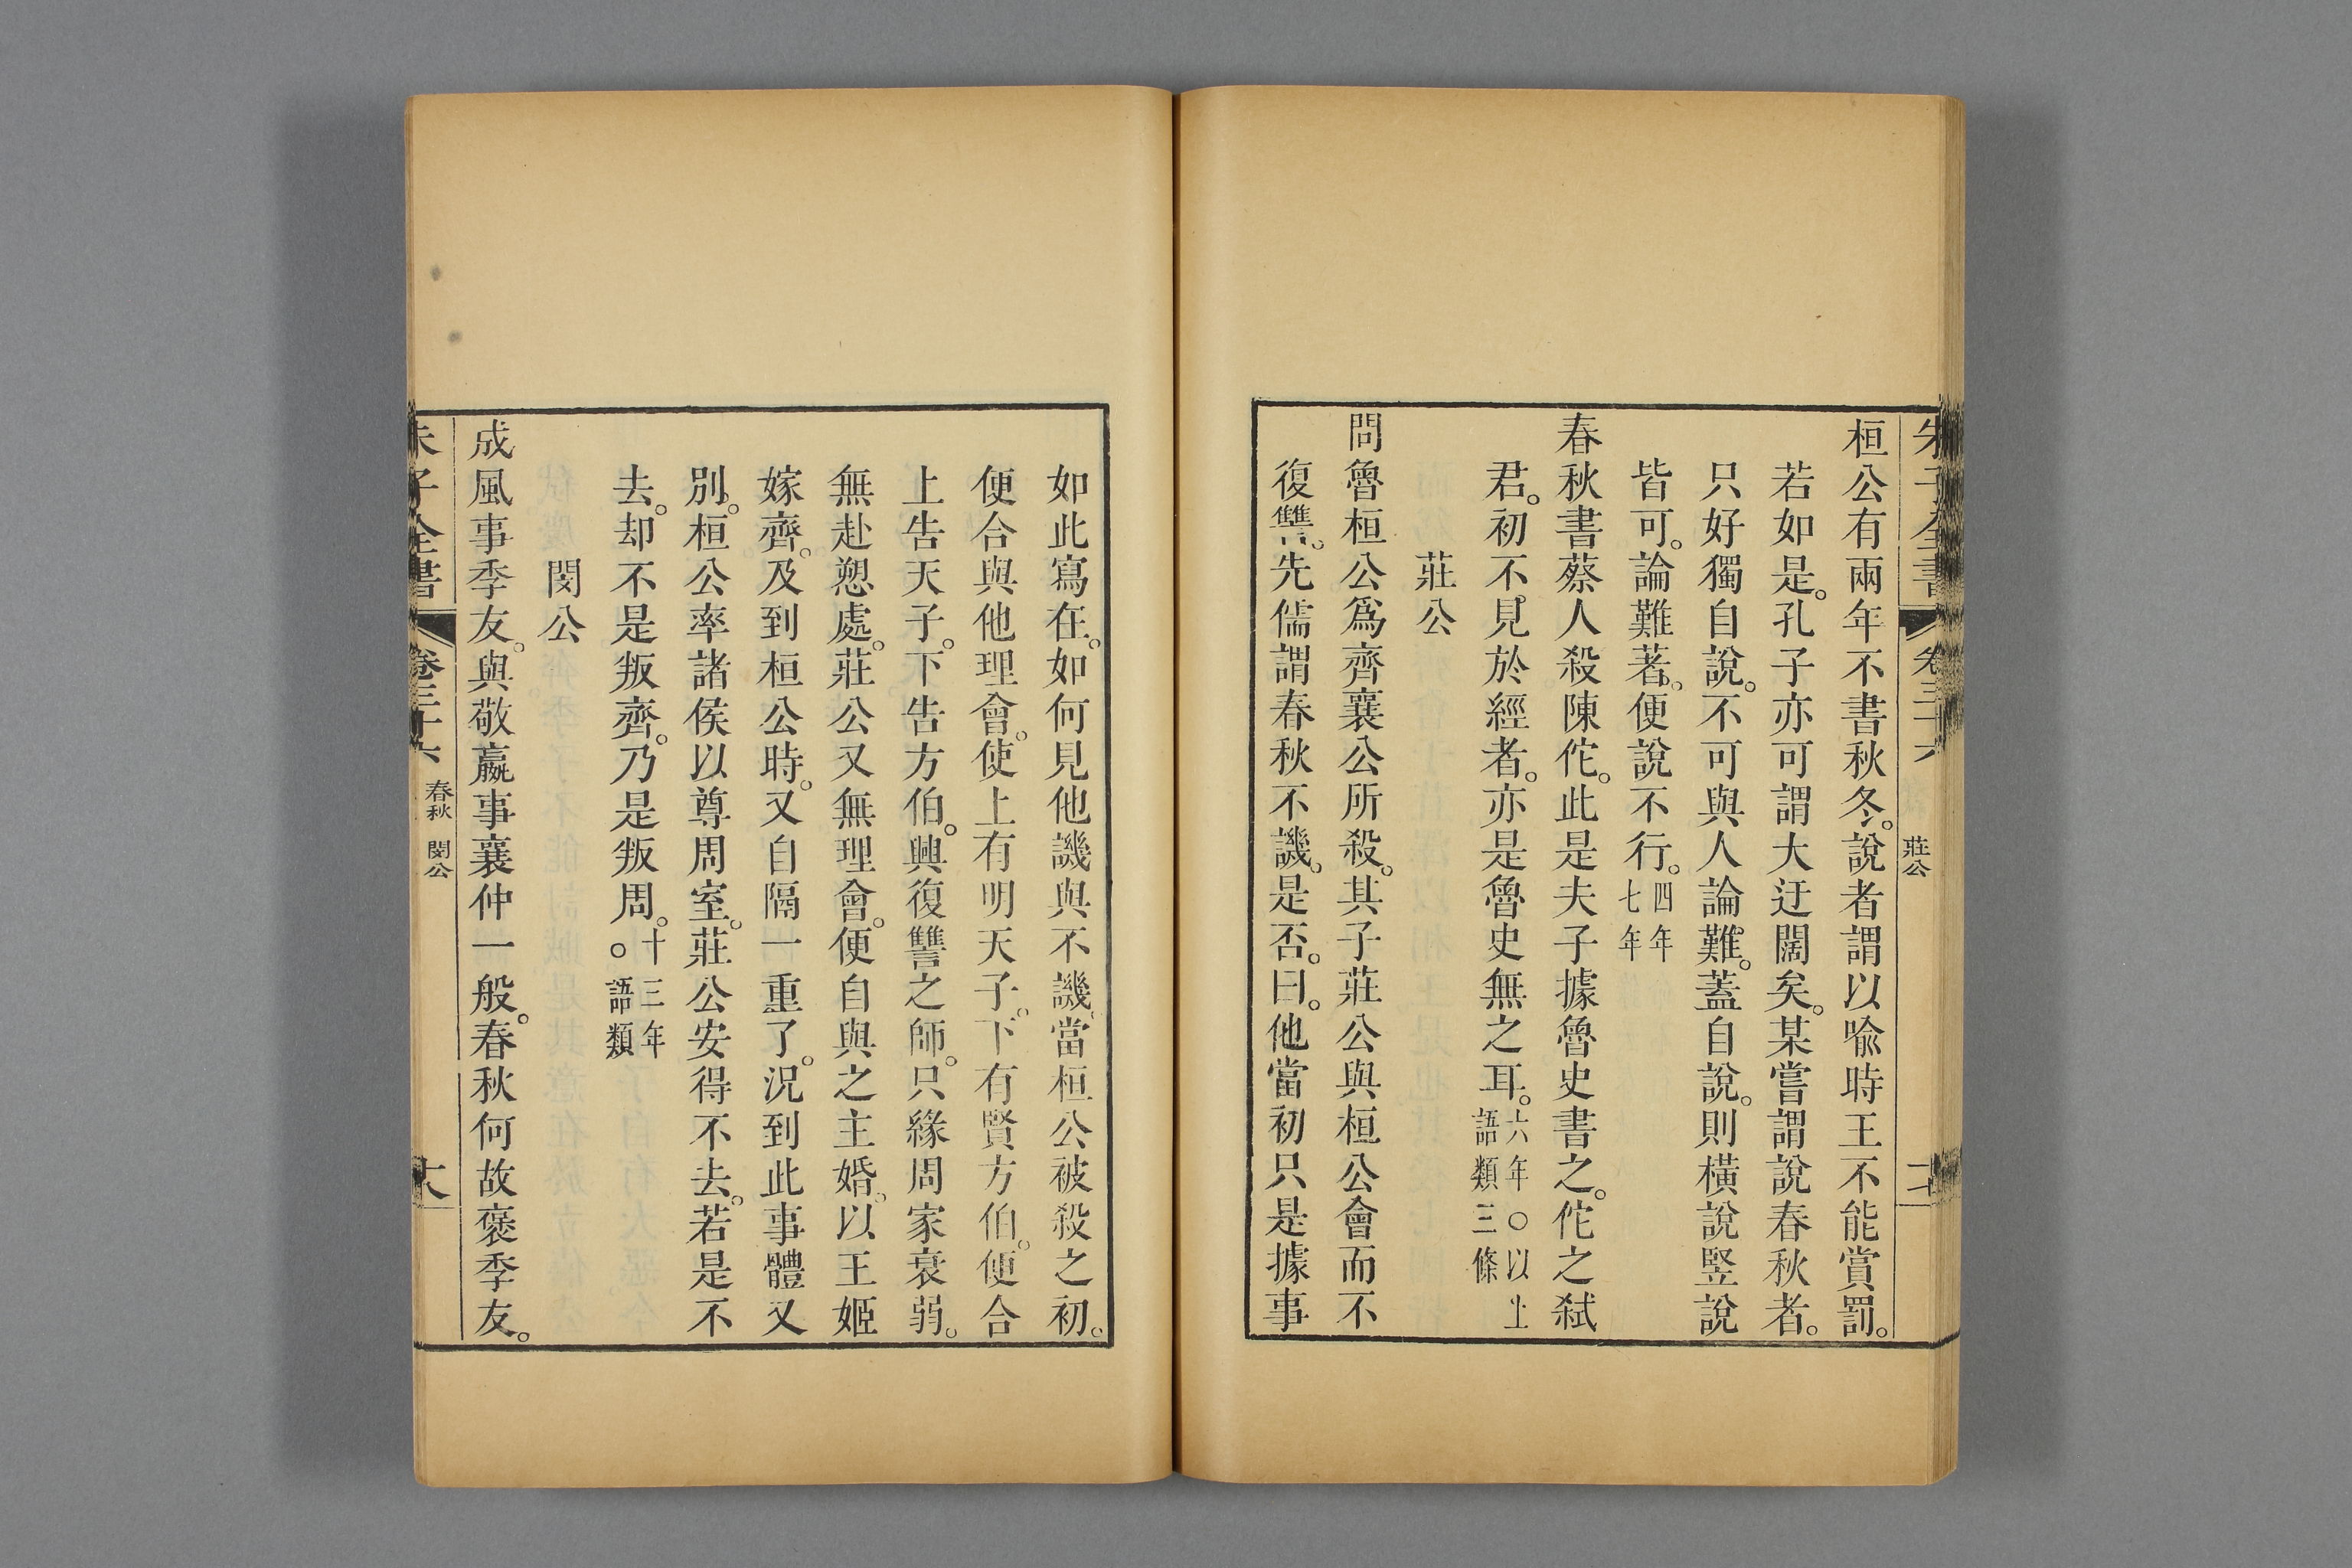 朱子全書 卷三十六 莊公
桓公有兩年不書秋冬。說者謂以喩時王不能賞罰。
若如是。孔子亦可謂大迂闊矣。某嘗謂說春秋者。
只好獨自說。不可與人論難。蓋自說。則橫說竪說
皆可。論難著。便說不行。四年七年
春秋書蔡人殺陳佗。此是夫子據魯史書之。佗之弑
君。初不見於經者。亦是魯史無之耳。六年○以上語類三條
莊公
問魯桓公爲齊襄公所殺。其子莊公與桓公會而不
復讐。先儒謂春秋不譏。是否。曰。他當初只是據事
如此寫在。如何見他譏與不譏。當桓公被殺之初。
便合與他理會。使上有明天子。下有賢方伯。便合
上告天子。下告方伯。興復讐之師。只緣周家衰弱。
無赴愬處。莊公又無理會。便自與之主婚。以王姬
嫁齊。及到桓公時。又自隔一重了。況到此事體又
別。桓公率諸侯以尊周室。莊公安得不去。若是不
去。却不是叛齊。乃是叛周。十三年○語類
閔公
成風事季友。與敬嬴事襄仲一般。春秋何故褒季友。
朱子全書 卷三十六 春秋 閔公 大